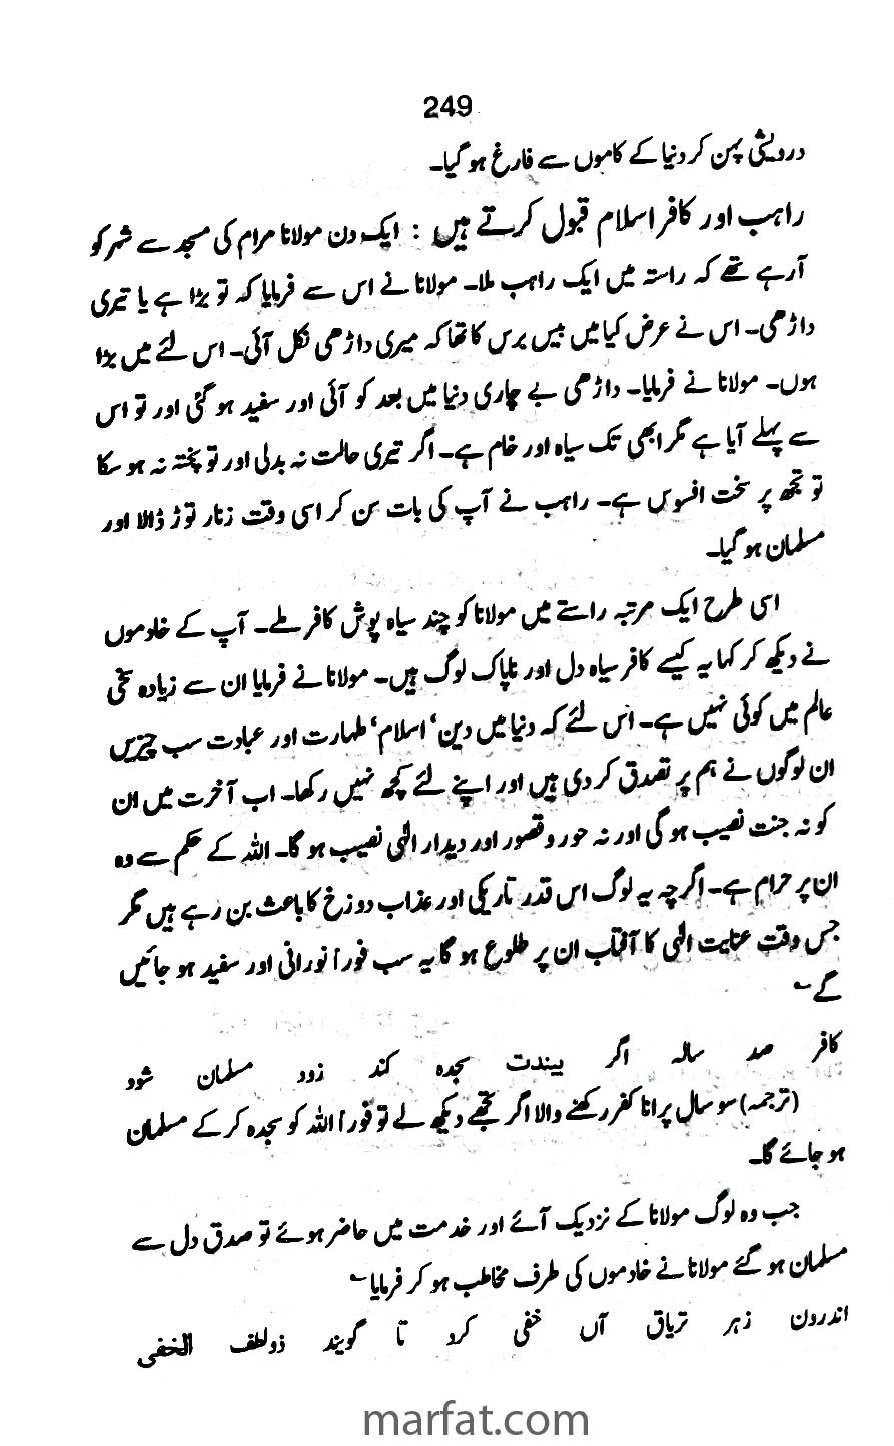 249
درویشی پہن کر دنیا کے کاموں سے فارغ ہو گیا۔
راہب اور کافر اسلام قبول کرتے ہیں : ایک دن مولانا مرام کی مسجد سے شہر کو
آرہے تھے کہ راستہ میں ایک راہب ملا۔ مولانا نے اس سے فرمایا کہ تو بڑا ہے یا تیری
داڑھی۔ اس نے عرض کیا میں بیس برس کا تھا کہ میری داڑھی نکل آئی۔ اس لئے میں بڑا
ہوں۔ مولانا نے فرمایا۔ داڑھی بے چاری دنیا میں بعد کو آئی اور سفید ہو گئی اور تو اس
سے پہلے آیا ہے مگر ابھی تک سیاہ اور خام ہے۔ اگر تیری حالت نہ بدلی اور تو پختہ نہ ہو سکا
تو تجھ پر سخت افسوس ہے۔ راہب نے آپ کی بات سن کر اسی وقت زنار توڑ ڈالا اور
مسلمان ہو گیا۔
اسی طرح ایک مرتبہ راستے میں مولانا کو چند سیاہ پوش کافر ملے۔ آپ کے خادموں
نے دیکھ کر کہا یہ کیسے کافر سیاہ دل اور ناپاک لوگ ہیں۔ مولانا نے فرمایا ان سے زیادہ سخی
عالم میں کوئی نہیں ہے۔ اس لئے کہ دنیا میں دین‘ اسلام‘ طہارت اور عبادت سب چیزیں
ان لوگوں نے ہم پر تصدق کر دی ہیں اور اپنے لئے کچھ نہیں رکھا۔ اب آخرت میں ان
کو نہ جنت نصیب ہو گی اور نہ حور و قصور اور دیدار الٰہی نصیب ہو گا۔ اللہ کے حکم سے وہ
ان پر حرام ہے۔ اگرچہ یہ لوگ اس قدر تاریکی اور عذاب دوزخ کا باعث بن رہے ہیں مگر
جس وقت عنایت الٰہی کا آفتاب ان پر طلوع ہو گا یہ سب فوراً نورانی اور سفید ہو جائیں
گے ؎
کافر صد سالہ اگر بیندت سجدہ کند زود مسلمان شود
(ترجمہ) سو سال پرانا کفر رکھنے والا اگر تجھے دیکھ لے تو فوراً اللہ کو سجدہ کر کے مسلمان
ہو جائے گا۔
جب وہ لوگ مولانا کے نزدیک آئے اور خدمت میں حاضر ہوئے تو صدق دل سے
مسلمان ہو گئے مولانا نے خادموں کی طرف مخاطب ہو کر فرمایا ؎
اندرون زہر تریاق آں خفی کرد تا گویند ذو لطف الخفی
marfat.com